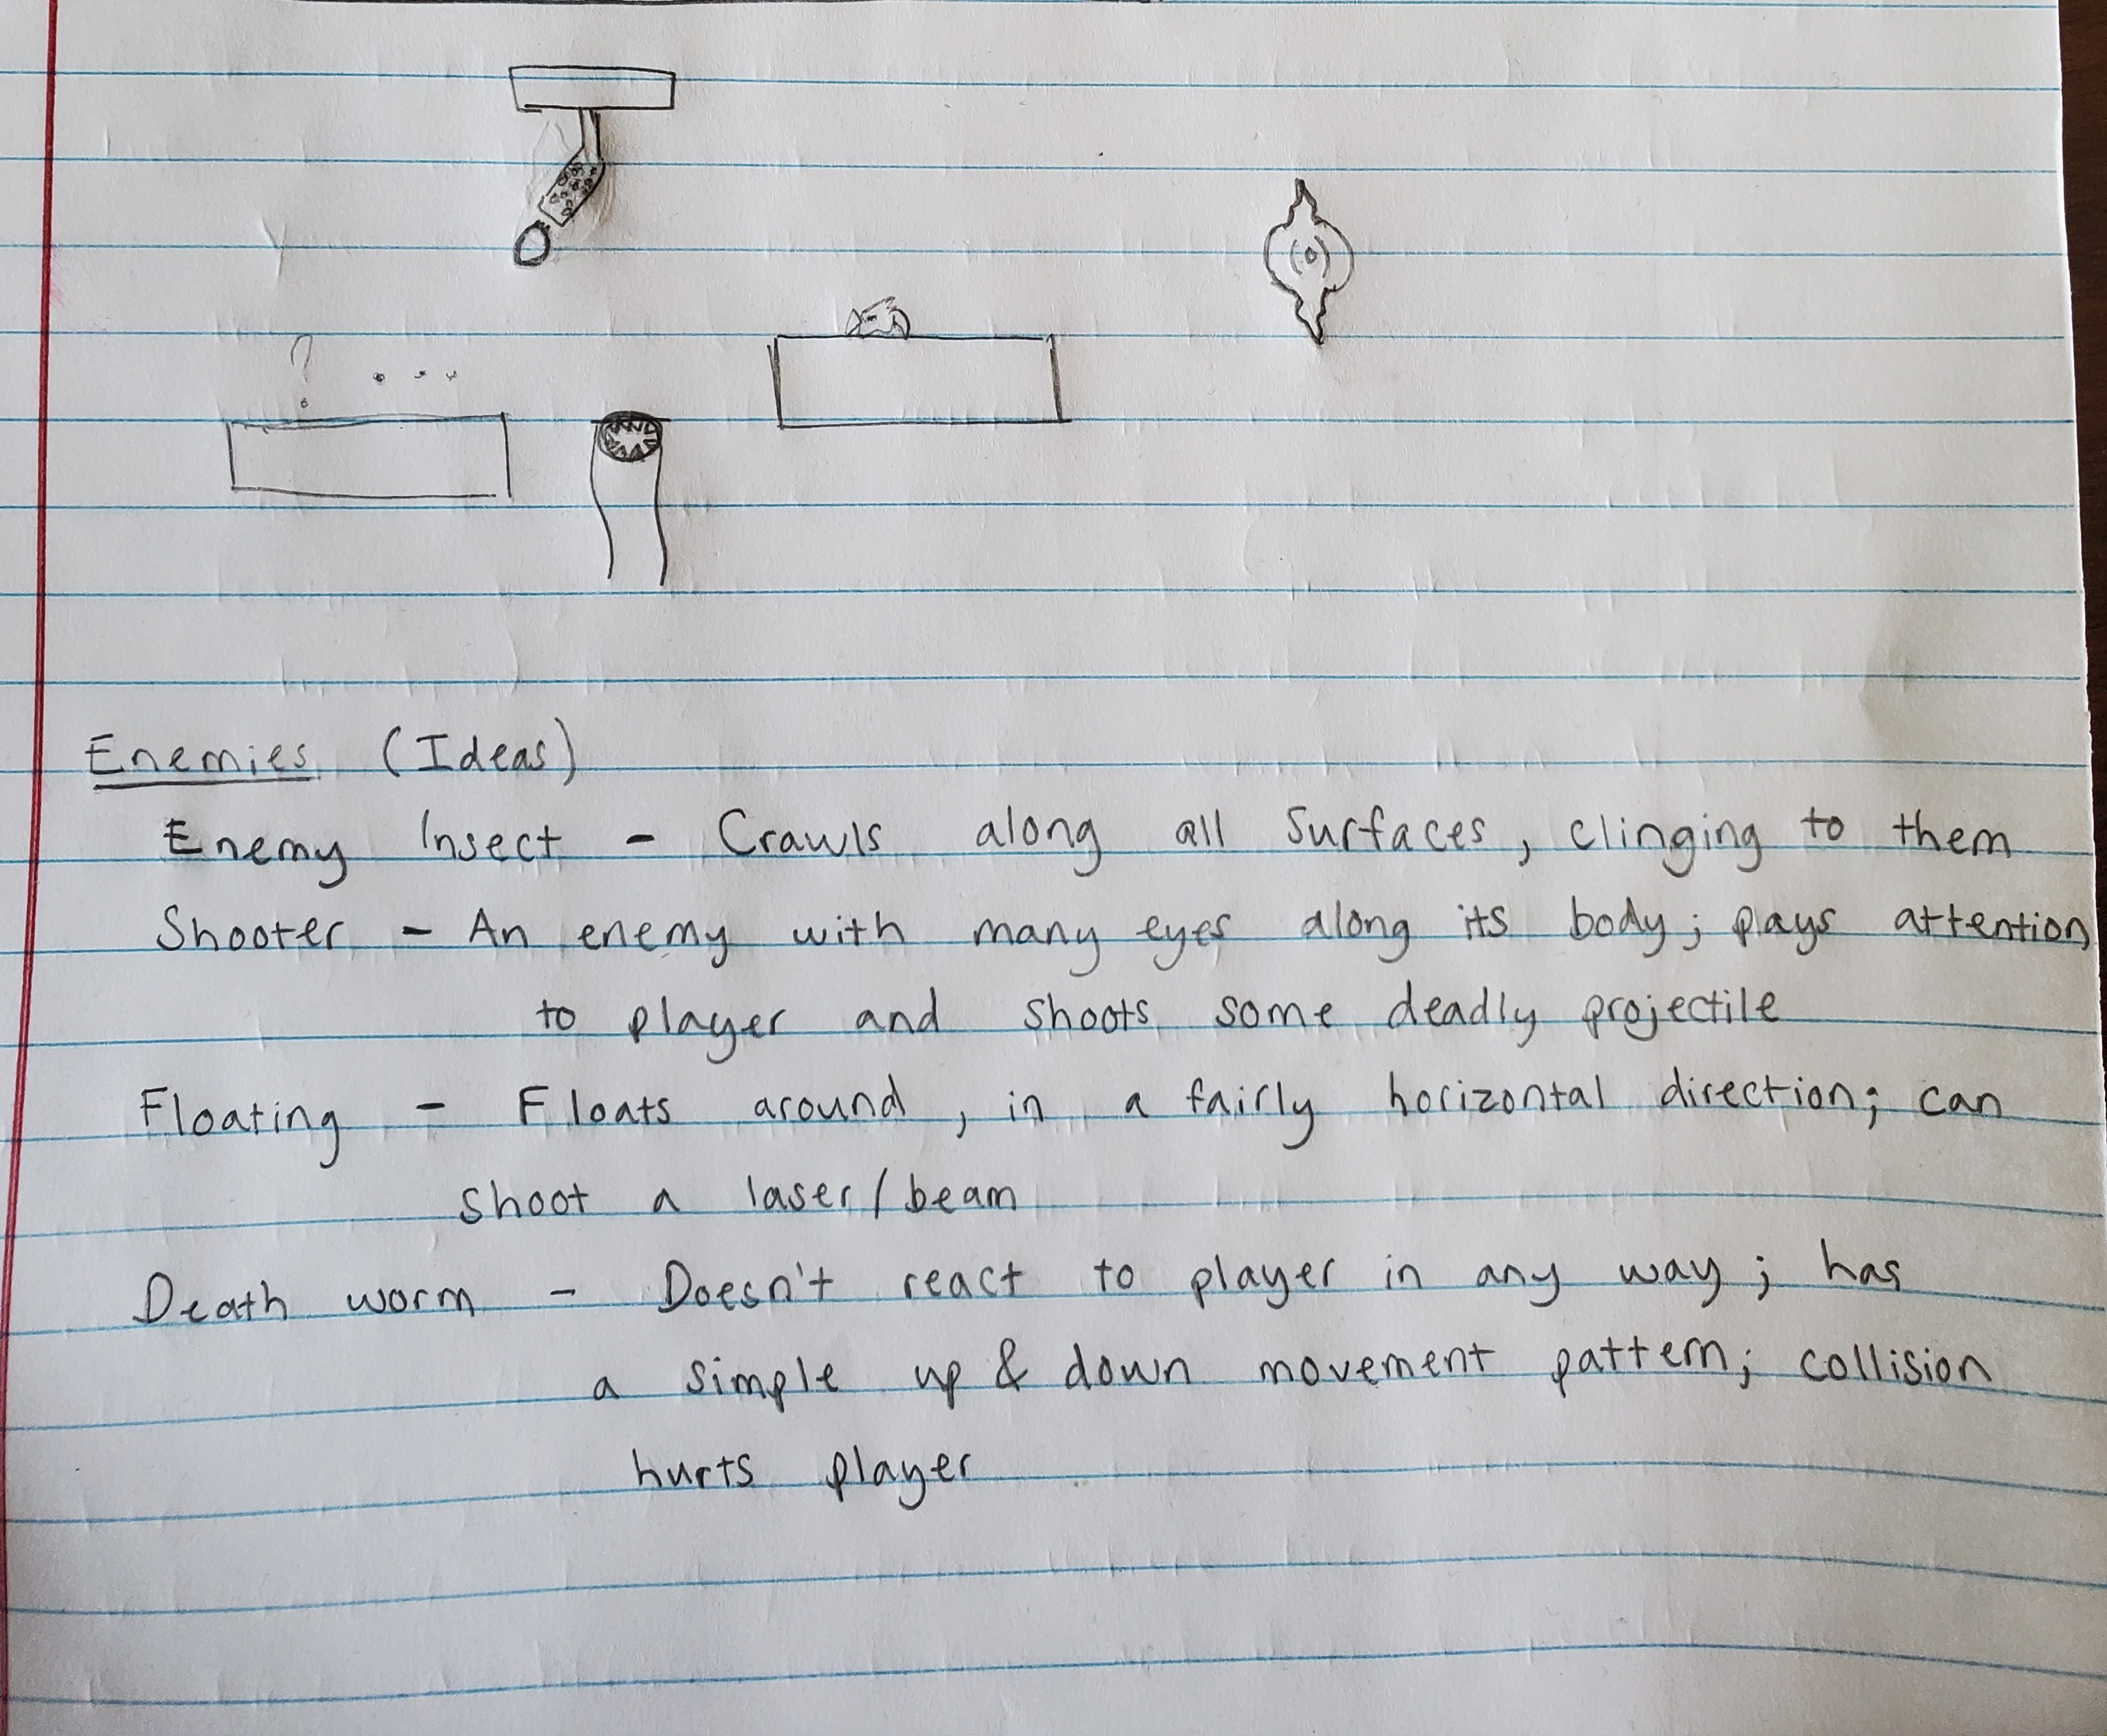 ? ...
Enemies (Ideas)
Enemy Insect - Crawls along all surfaces, clinging to them
Shooter - An enemy with many eyes along its body; pays attention
to player and shoots some deadly projectile
Floating - Floats around, in a fairly horizontal direction; can
shoot a laser/beam
Death worm - Doesn't react to player in any way; has
a simple up & down movement pattern; collision
hurts player